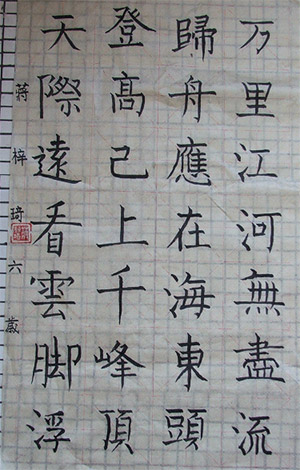 万里江河無盡流
歸舟應在海東頭
登高已上千峰頂
天際遠看雲脚浮
蔣梓琦六歲